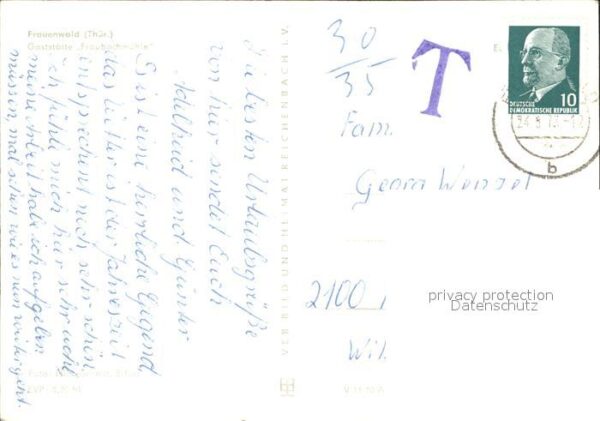 Frauenwald (Thür.)
Gaststätte „Fraubachmühle"
Die besten Urlaubsgrüße
von hier sendet Euch
Adelheid und Günter
Es ist eine herrliche Gegend
das Wetter ist der Jahreszeit
entsprechend noch sehr schön
ich fühle mich hier sehr wohl
meine Arbeit habe ich aufgeben
müssen, mal sehen wie es nun weitergeht.
VERLAG BILD UND HEIMAT REICHENBACH I. V.
30
35
T
DEUTSCHE
DEMOKRATISCHE REPUBLIK
10
b
Fam.
Georg Wenzel
2100
privacy protection
Datenschutz